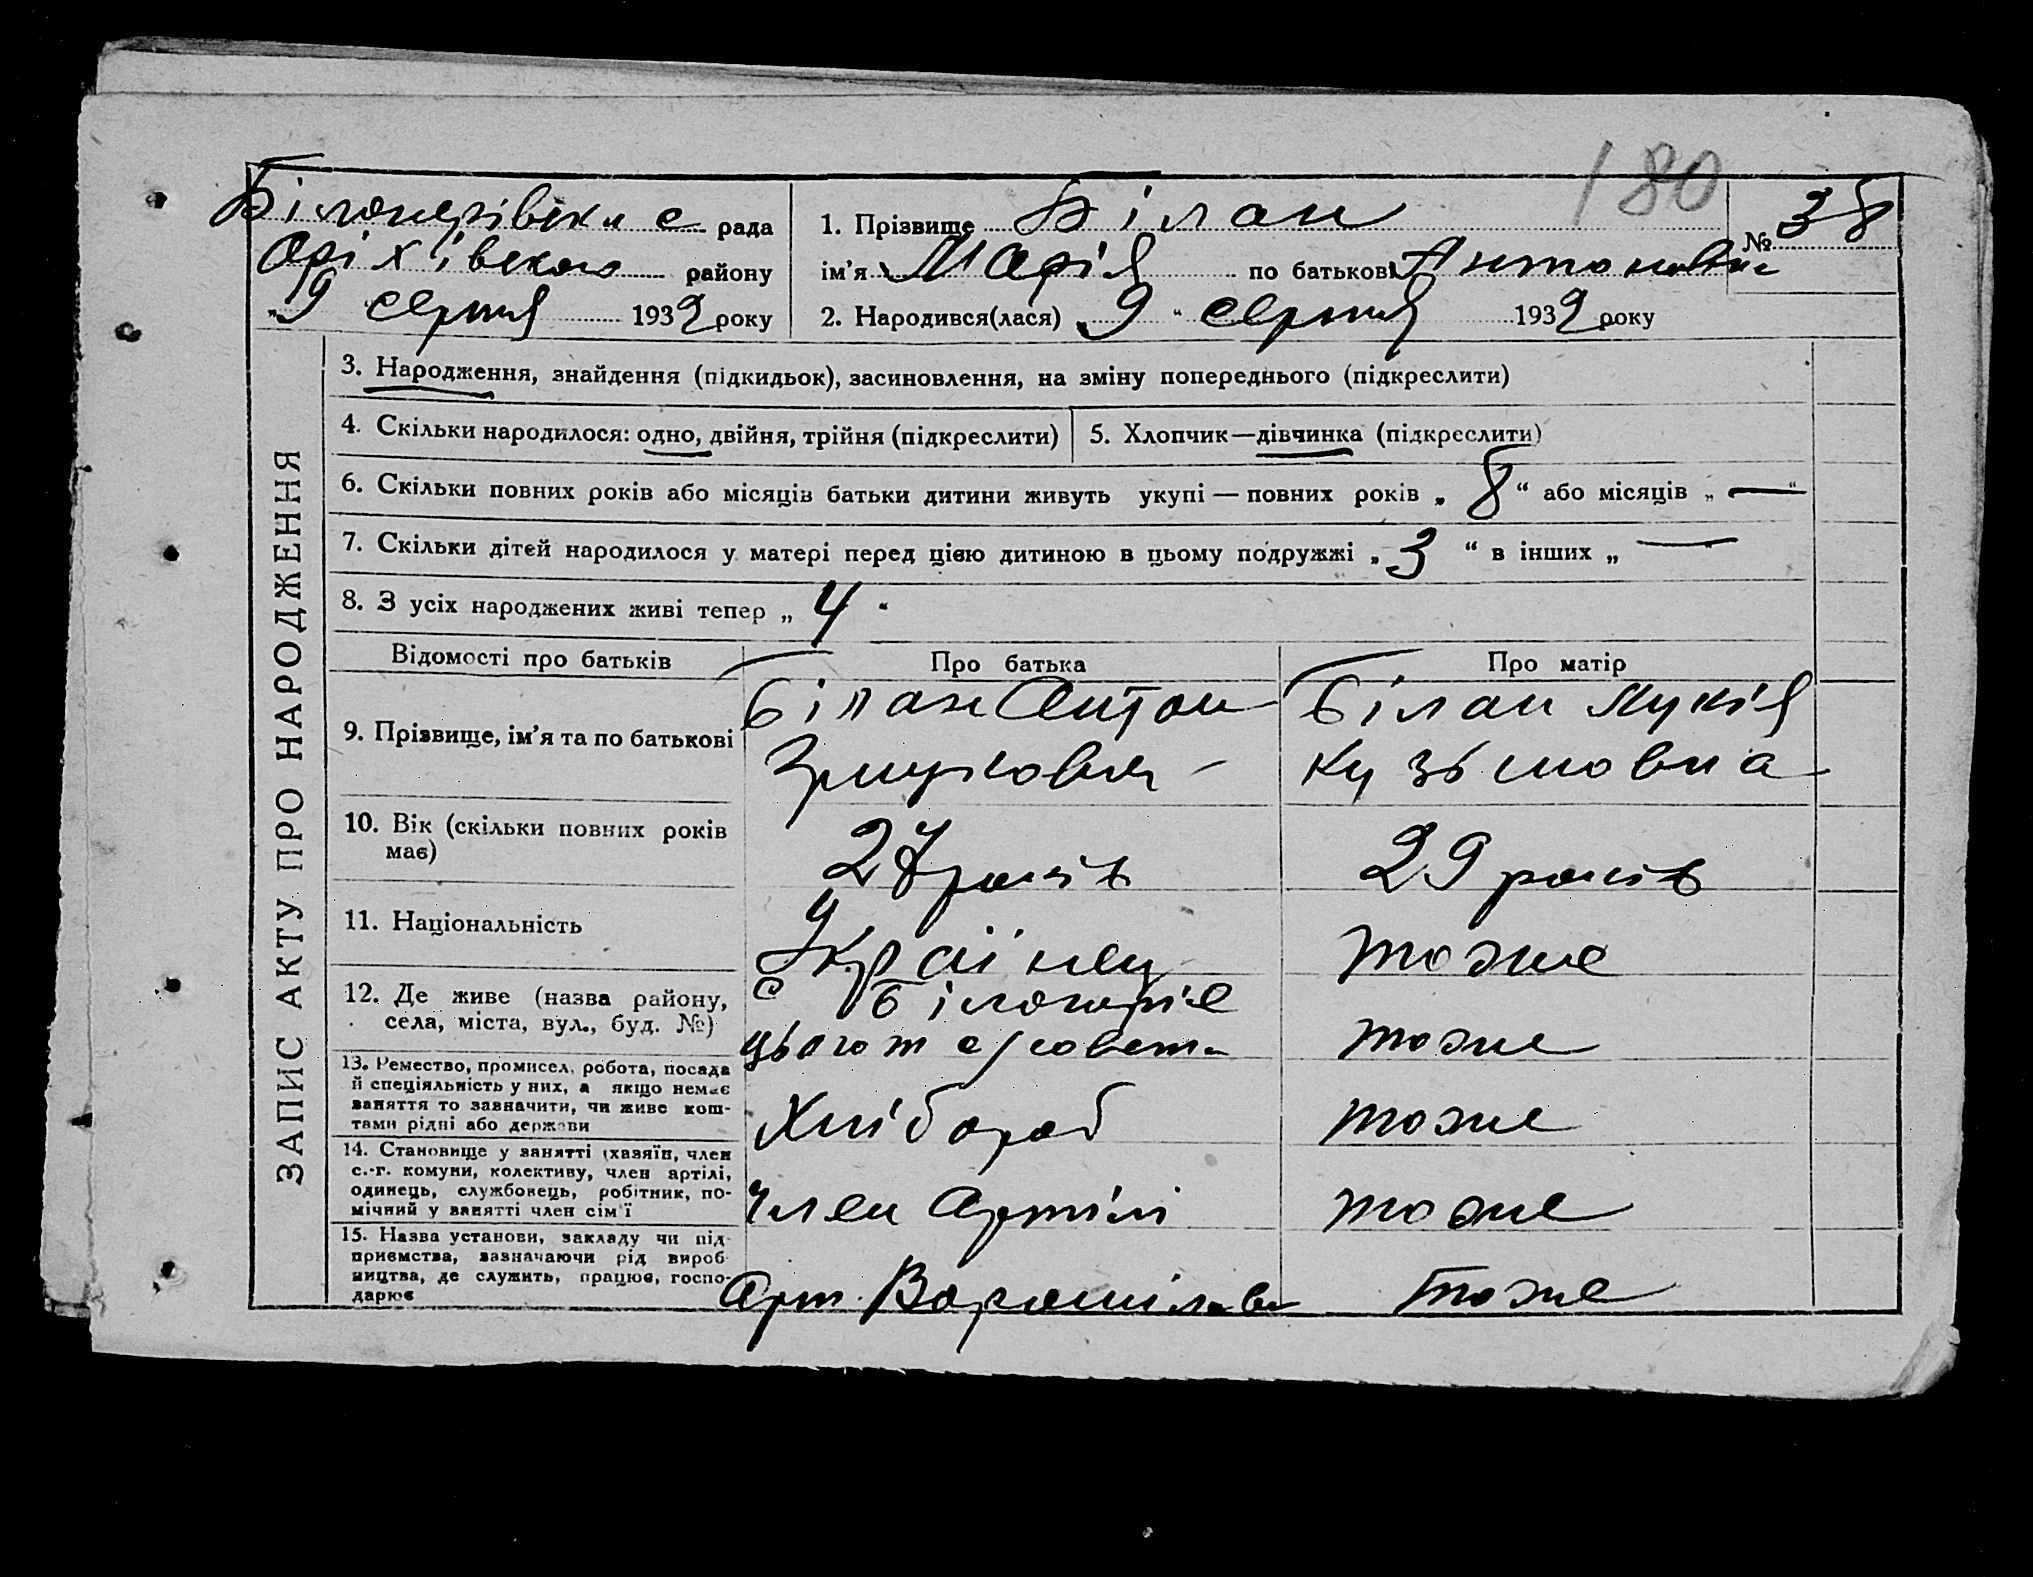 180
Білогірівська с рада
Оріхівського району
"9" серпня 1932 року
1. Прізвище Білан
№ 38
ім'я Марія по батькові Антоновна
2. Народився(лася) 9 " серпня 1932 року
ЗАПИС АКТУ ПРО НАРОДЖЕННЯ
3. Народження, знайдення (підкидьок), засиновлення, на зміну попереднього (підкреслити)
4. Скільки народилося: одно, двійня, трійня (підкреслити)
5. Хлопчик—дівчинка (підкреслити)
6. Скільки повних років або місяців батьки дитини живуть укупі — повних років „ 8 “ або місяців „ — “
7. Скільки дітей народилося у матері перед цією дитиною в цьому подружжі „ 3 “ в інших „ — “
8. З усіх народжених живі тепер „ 4 “
Відомості про батьків
Про батька
Про матір
9. Прізвище, ім'я та по батькові
Білан Антон
Білан Лукія
Кузьмовна
10. Вік (скільки повних років
має)
27 років
29 років
11. Національність
Українец
тоже
12. Де живе (назва району,
села, міста, вул., буд. №)
с Білогоріє
цього ж с/совета
тоже
13. Ремество, промисел, робота, посада
й спеціяльність у них, а якщо немає
заняття то зазначити, чи живе кош-
тами рідні або держави
Хлібороб
тоже
14. Становище у занятті (хазяїн, член
с.-г. комуни, колективу, член артілі,
одинець, службовець, робітник, по-
мічний у занятті член сім'ї
Член Артілі
тоже
15. Назва установи, закладу чи під-
приємства, зазначаючи рід вироб-
ництва, де служить, працює, госпо-
дарює
Арт. Ворошілова
тоже